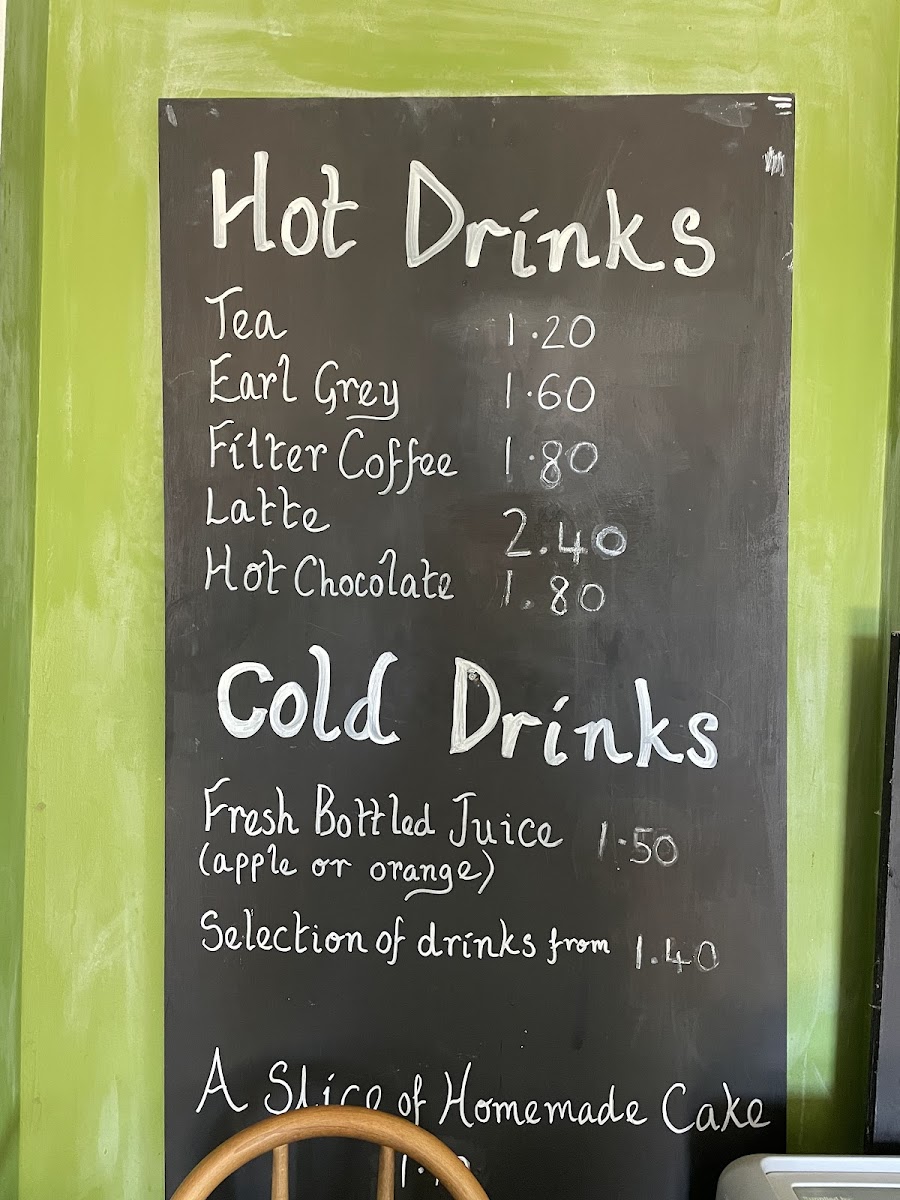 Hot Drinks
Tea 1.20
Earl Grey 1.60
Filter Coffee 1.80
Latte 2.40
Hot Chocolate 1.80
Cold Drinks
Fresh Bottled Juice 1.50
(apple or orange)
Selection of drinks from 1.40
A Slice of Homemade Cake